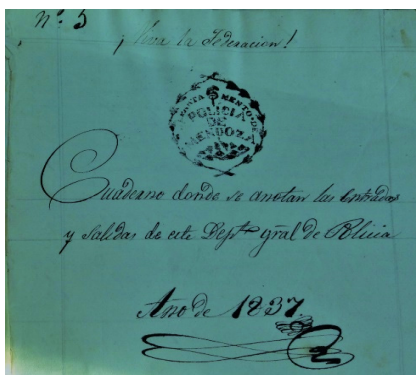 Nº 5
¡Viva la Federacion!
DEPARTAMENTO DE
POLICIA
DE
MENDOZA
Cuaderno donde se anotan las entradas
y salidas de este Deptº gral de Policia
Año de 1837